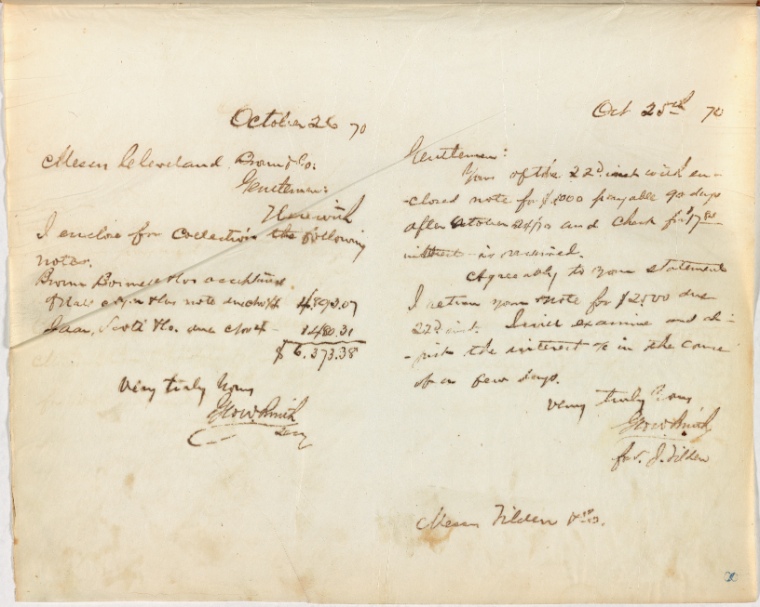 October 26 70
Messrs Cleveland Brown & Co:
Gentlemen:
Herewith
I enclose for collection the following
notes.
Brown & Co acceptance.
& Co note due 4,893.07
Isaac Scott & Co. due 1480.31
$6.373.38
Very truly yours
Geo W Smith
Secy
Oct 25th 70
Gentlemen:
Yours of the 22d inst with en-
-closed note for payable 90 days
after October and check for
interest is received.
Agreeably to your statement
I return your note for $2500 due
22d inst. I will examine and
the interest &c in the course
of a few days.
Very truly yours,
Geo W Smith
for J. Tilden
Messrs Tilden & Co.